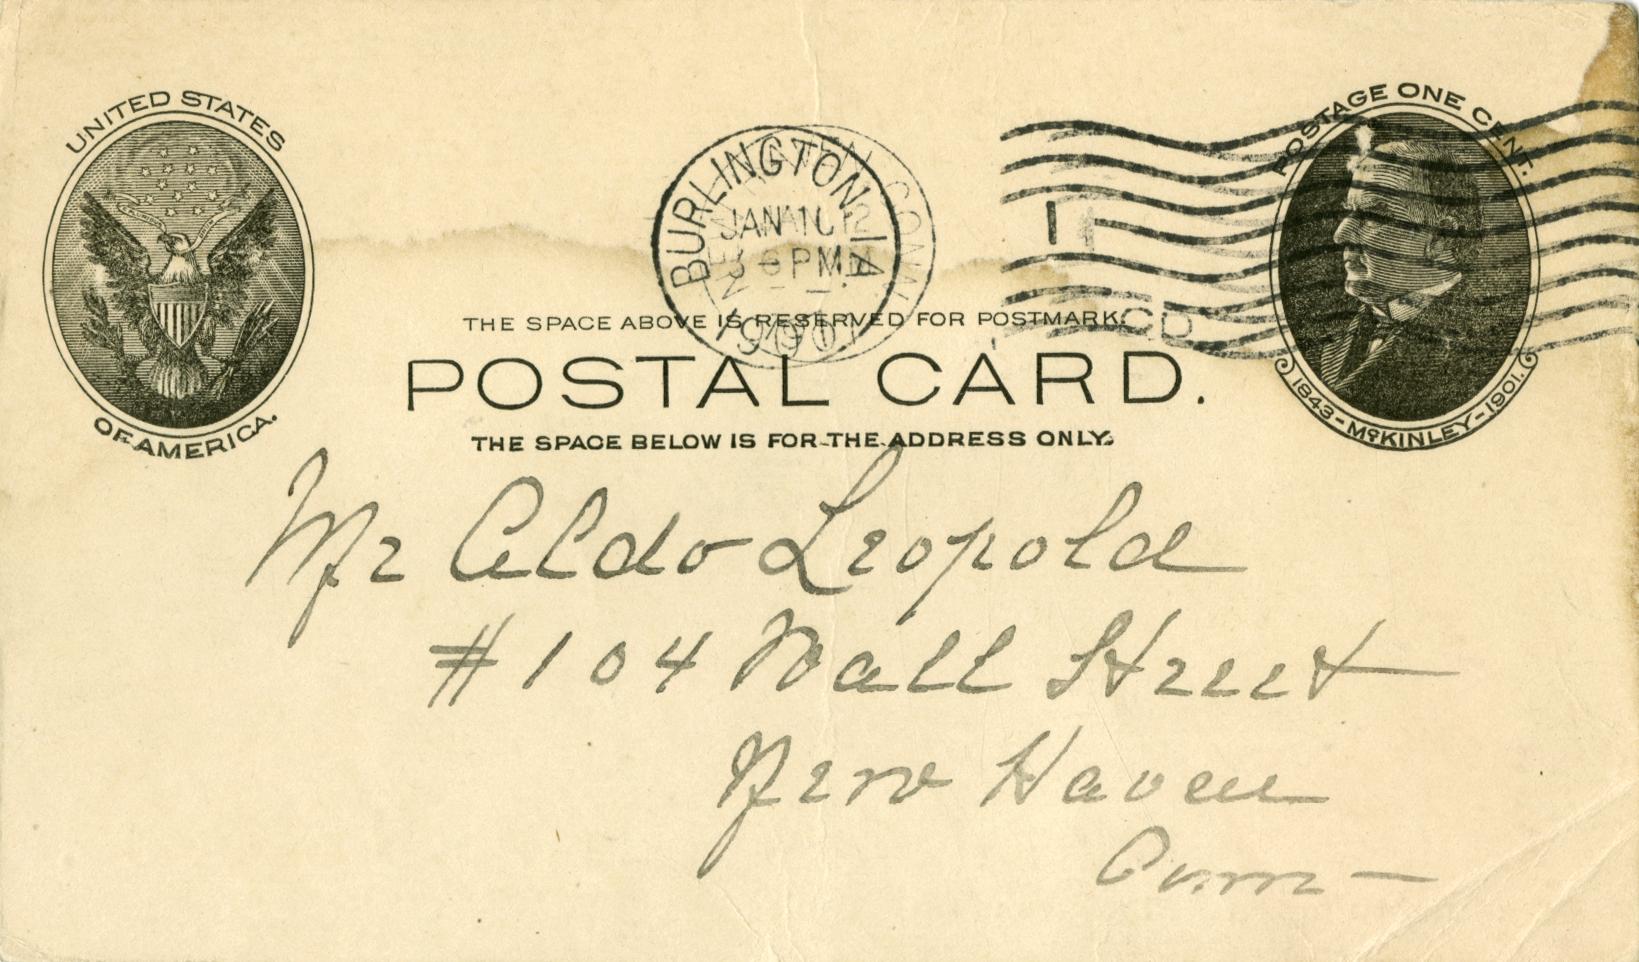 UNITED STATES
OF AMERICA.
POSTAGE ONE CENT.
1843-McKINLEY-1901.
BURLINGTON IA.
JAN 10
PM
190
CONN
1
THE SPACE ABOVE IS RESERVED FOR POSTMARK.
POSTAL CARD.
THE SPACE BELOW IS FOR THE ADDRESS ONLY.
Mr Aldo Leopold
#104 Wall Street
New Haven
Conn